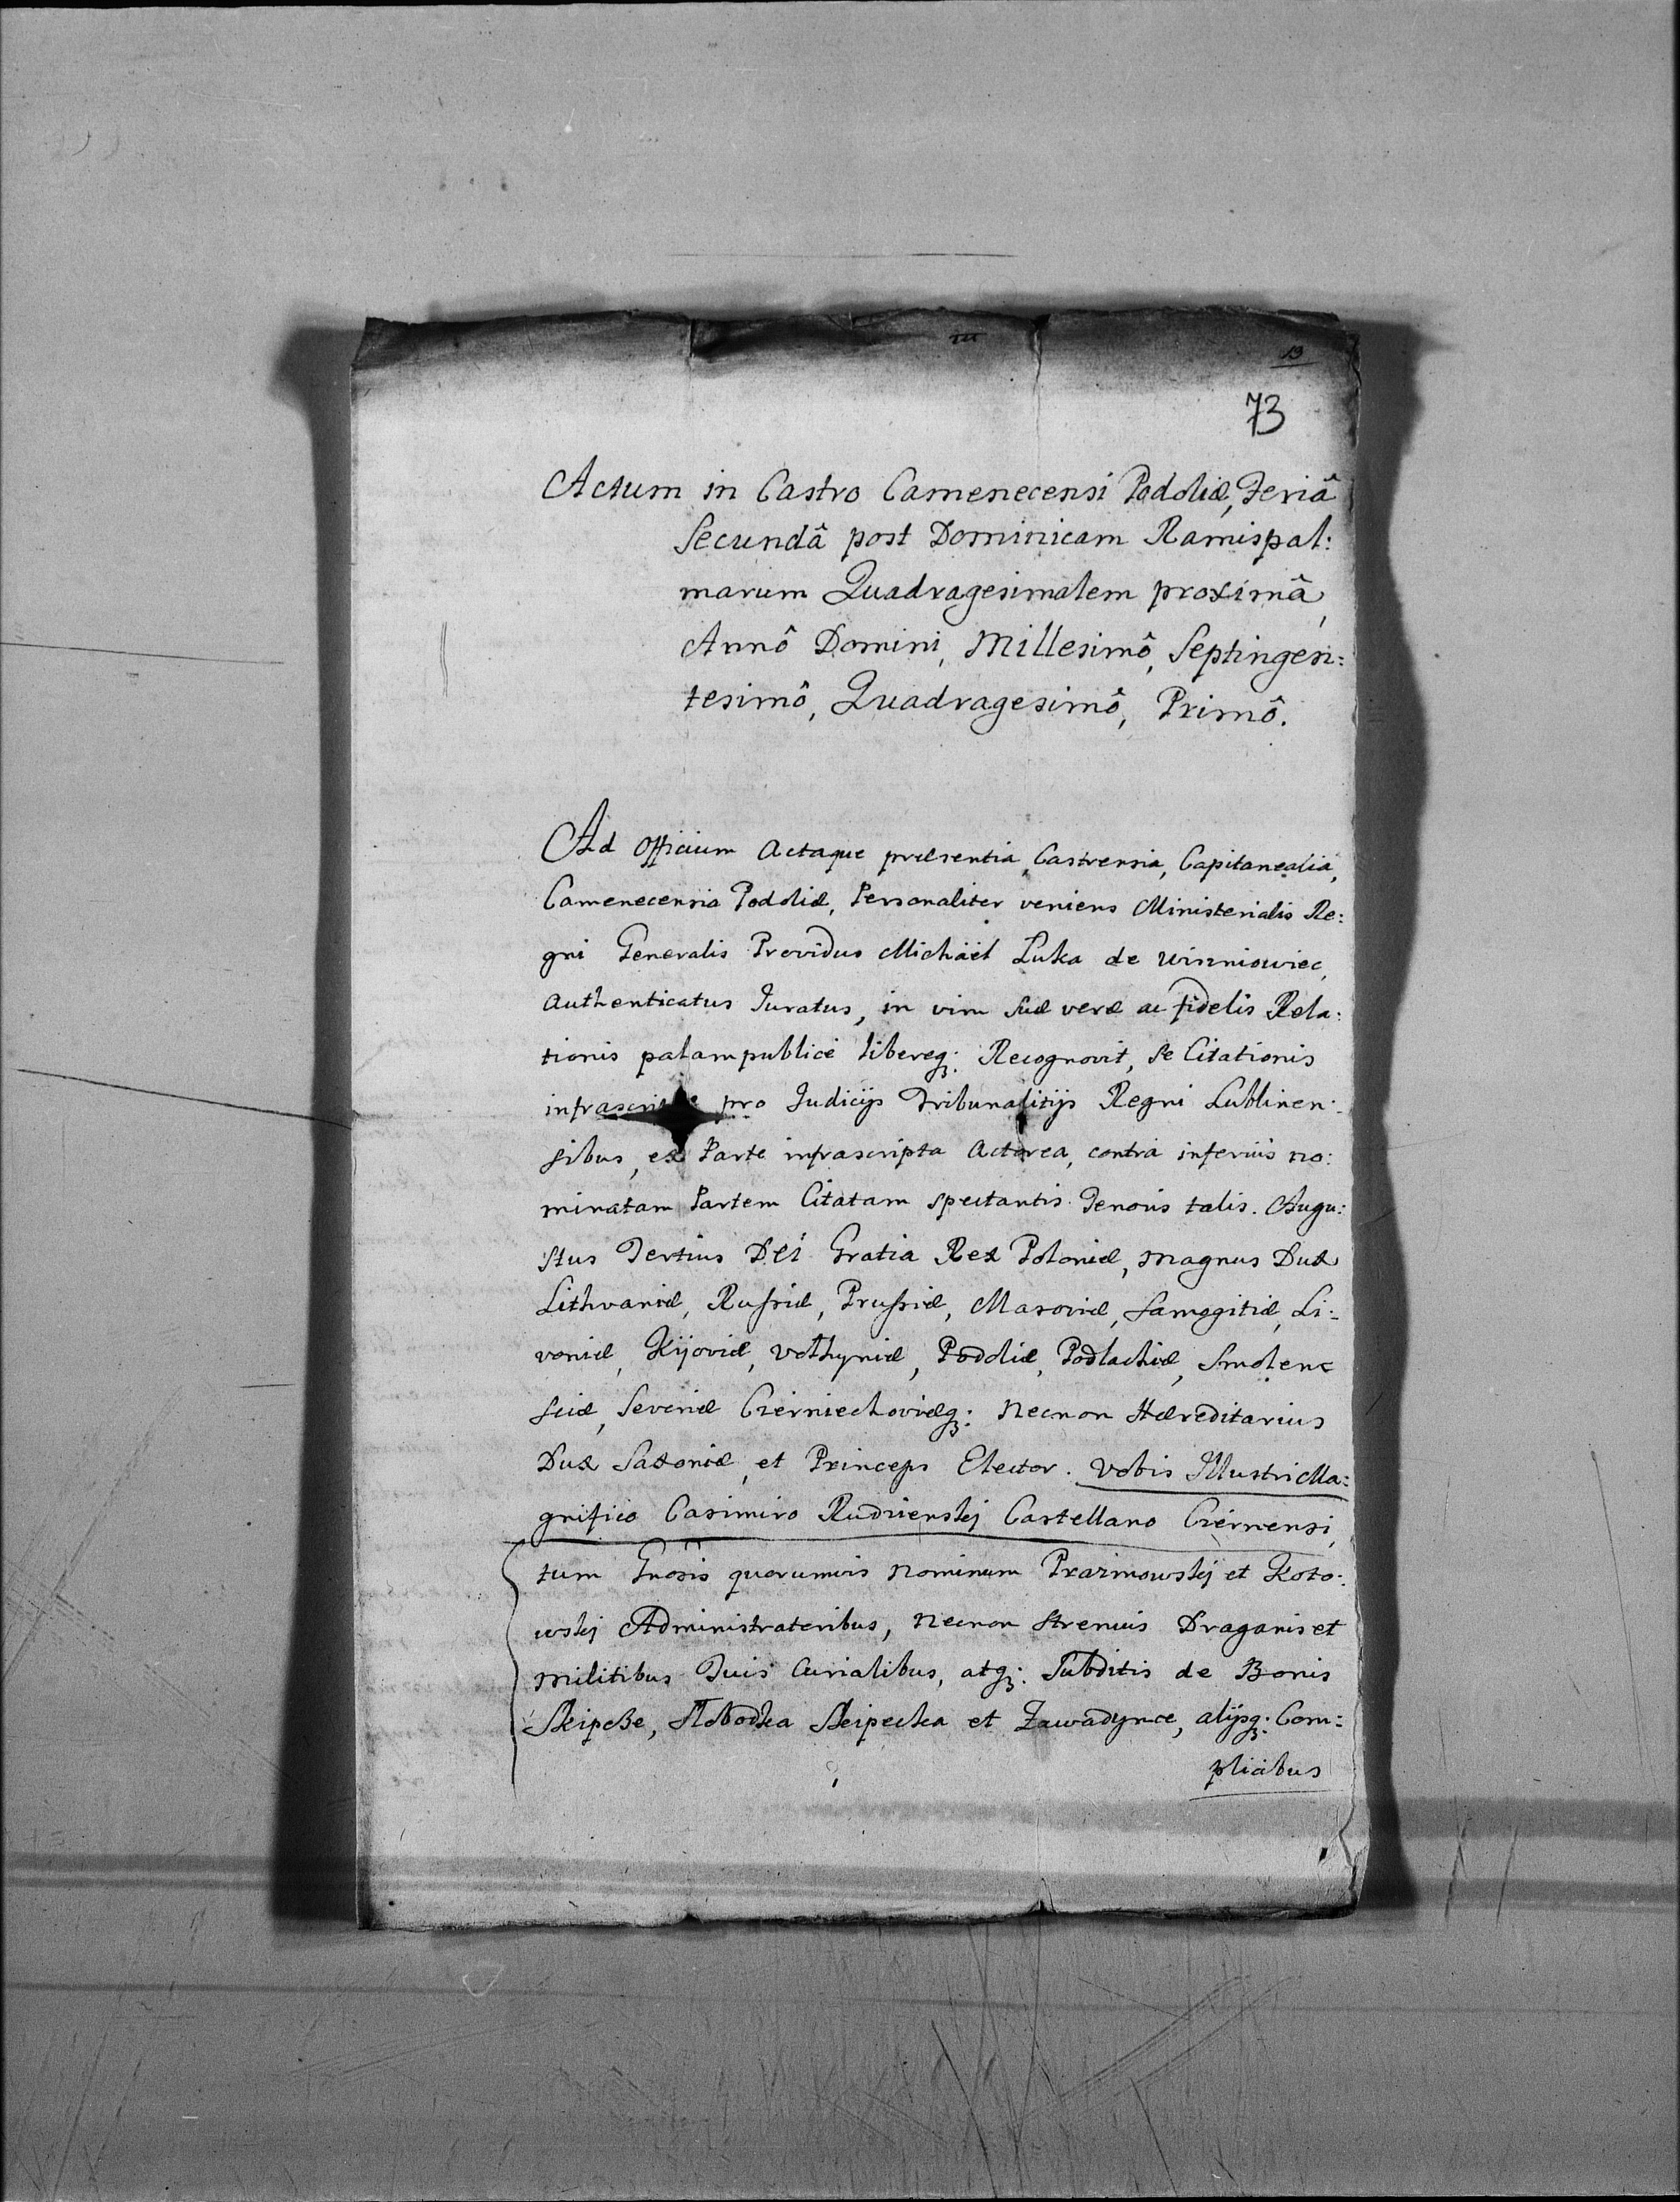 19
73
Actum in Castro Camenecensi Podoliæ, Feriâ
Secundâ post Dominicam Ramispal:
marum Quadragesimalem proximâ,
Annô Domini, Millesimô, Septingen:
tesimô, Quadragesimô, Primô.
Ad Officium Actaque præsentia, Castrensia, Capitanealia,
Camenecensia Podoliæ, Personaliter veniens Ministerialis Re:
gni Generalis Providus Michäel Luka de Wiszniowiec,
Authenticatus Juratus, in vim suæ veræ ac fidelis Rela:
tionis palam publicè libereq: Recognovit, se Citationis
infrascriptæ pro Judicijs Tribunalitijs Regni Lublinen:
sibus, ex Parte infrascripta Actorea, contra inferiùs no:
minatam Partem Citatam spectantis Tenoris talis. Augu:
stus Tertius DEI Gratia Rex Poloniæ, Magnus Dux
Lithvaniæ, Russiæ, Prussiæ, Masoviæ, Samogitiæ, Li:
voniæ, Kijoviæ, Volhyniæ, Podoliæ, Podlachiæ, Smolen:
sciæ, Severiæ Czerniechoviæq: Necnon Hæreditarius
Dux Saxoniæ, et Princeps Elector. Vobis Illustri Ma:
gnifico Casimiro Rudzienskj Castellano Czernensi,
tum Gnosis quorumvis Nominum Prazmowskj et Koto:
wskj Administratoribus, Necnon Strenuis Draganis et
Militibus Tuis Curialibus, atq: Subditis de Bonis
Skipcze, Słobodka Skipecka et Zawadynce, alijsq: Com:
plicibus